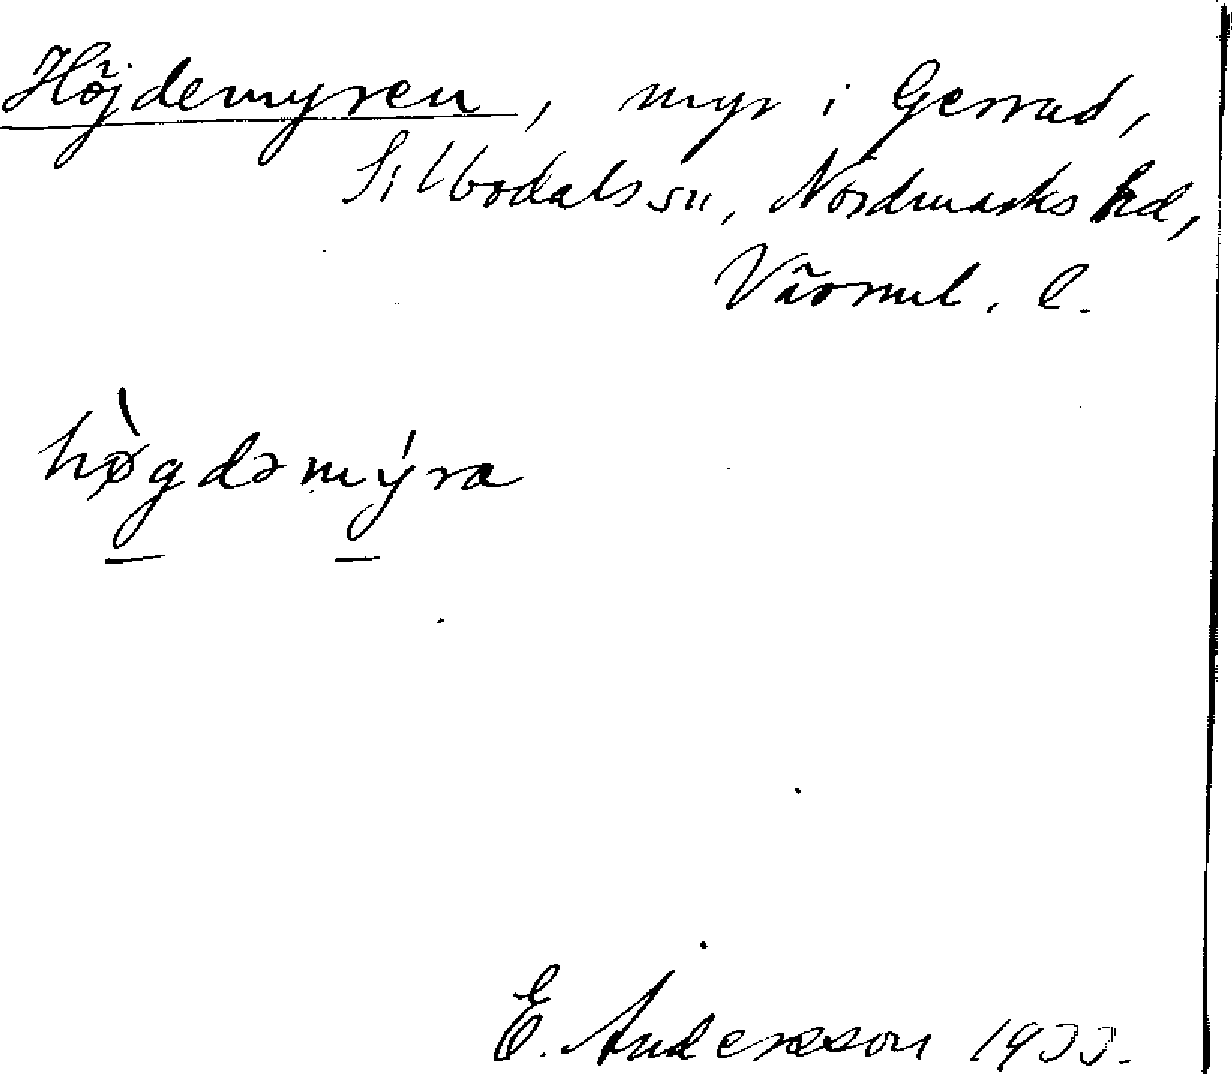 Höjdemyren, myr i Gerrud,
Silbodals sn, Nordmarks hd,
Värml. l.
hø̀gdəmýra
E. Andersson 1933.